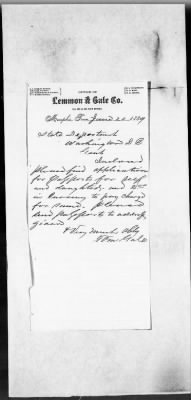 OFFICE OF
Lemmon & Gale Co.
Memphis, Tenn June 20 1889
State Department
Washington D C
Gents
Inclosed
please find application
for Passports for self
and daughter, and
in Currency to pay charge
for same. Please
send Passports to address
given
& Very much Obly
Gale